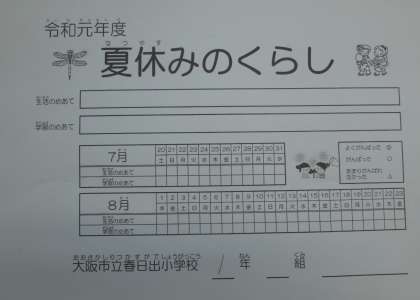 令和元年度
夏休みのくらし
生活のめあて
学習のめあて
7月 20 21 22 23 24 25 26 27 28 29 30 31
土 日 月 火 水 木 金 土 日 月 火 水
生活のめあて
学習のめあて
よくがんばった ◎
がんばった ○
あまりがんばれなかった △
8月 1 2 3 4 5 6 7 8 9 10 11 12 13 14 15 16 17 18 19 20 21 22 23
木 金 土 日 月 火 水 木 金 土 日 月 火 水 木 金 土 日 月 火 水 木 金
生活のめあて
学習のめあて
大阪市立春日出小学校 年 組